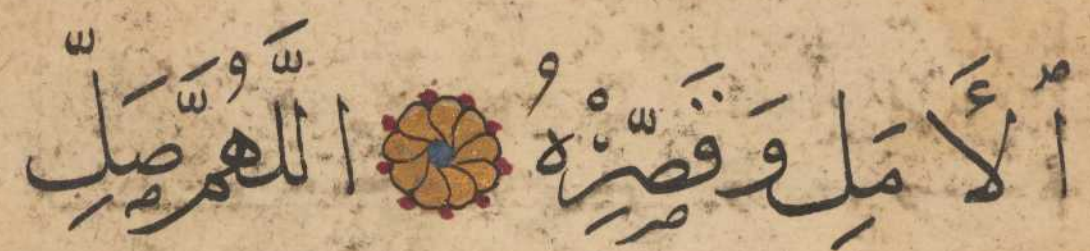 ٱلْأَمَلِ وَقَصِّرْهُ اللَّهُمَّ صَلِّ